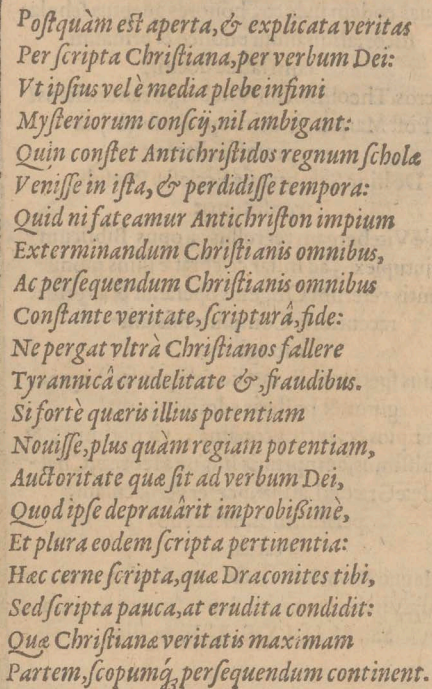 Poſtquàm eſt aperta, & explicata veritas
Per ſcripta Chriſtiana, per verbum Dei:
Vt ipſius vel è media plebe infimi
Myſteriorum conſcij, nil ambigant:
Quin conſtet Antichriſtidos regnum ſcholæ
Veniſſe in iſta, & perdidiſſe tempora:
Quid ni fateamur Antichriſton impium
Exterminandum Chriſtianis omnibus,
Ac perſequendum Chriſtianis omnibus
Conſtante veritate, ſcripturâ, fide:
Ne pergat vltrà Chriſtianos fallere
Tyrannicâ crudelitate &, fraudibus.
Si fortè quæris illius potentiam
Nouiſſe, plus quàm regiam potentiam,
Auctoritate quæ ſit ad verbum Dei,
Quod ipſe deprauârit improbißimè,
Et plura eodem ſcripta pertinentia:
Hæc cerne ſcripta, quæ Draconites tibi,
Sed ſcripta pauca, at erudita condidit:
Quæ Chriſtianæ veritatis maximam
Partem, ſcopumq́; perſequendum continent.